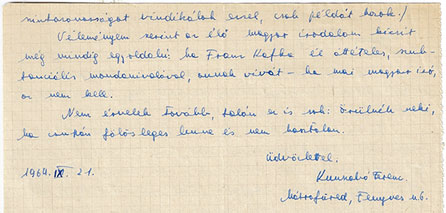 szinkronosságot vindikálok ezzel, csak példát hozok./
Véleményem szerint az élő magyar irodalom kicsit
még mindig egyoldalú: ha Franz Kafka él áttételes, szub-
tanciális mondanivalóval, annak vivát – ha mai magyar író,
az nem kell.
Nem érvelek tovább, talán ez is sok: örülnék neki,
ha csupán fölösleges lenne és nem hasztalan.
üdvözlettel:
Kunszabó Ferenc
1964. IX. 21.
Mátrafüred, Fenyves u 6.